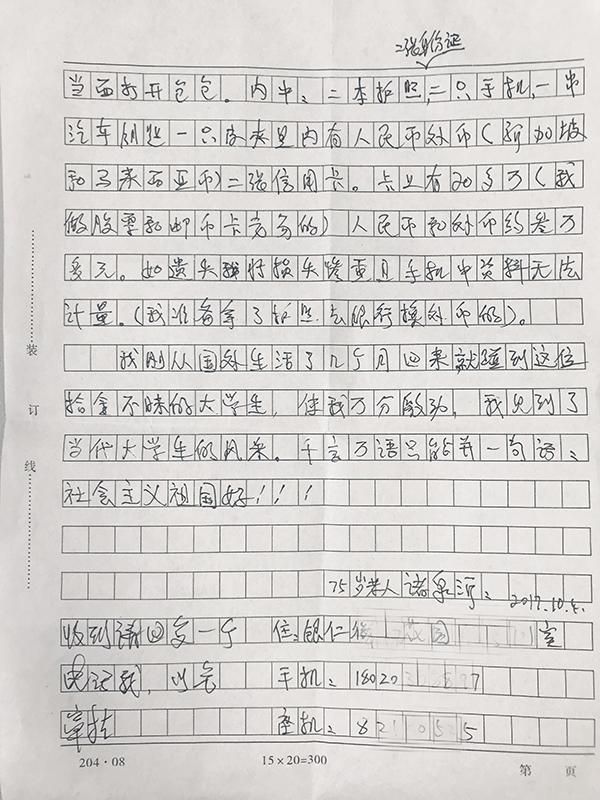 二张身份证
当面打开包包。内中:二本护照,二只手机,一串
汽车钥匙一只皮夹里内有人民币外币(新加坡
和马来西亚币)二张信用卡。卡上有20多万(我
做股票和邮币卡交易的)人民币和外币约叁万
多元。如遗失我将损失惨重且手机中资料无法
计量。(我准备拿了护照去银行换外币的)。
我刚从国外生活了几个月回来就碰到这位
拾金不昧的大学生,使我万分激动,我见到了
当代大学生的风采。千言万语只能并一句话:
社会主义祖国好!!!
75岁老人诸泉河: 2017.10.5.
收到请回复一个 住:银仁 室
电话我,以免 手机:18020 7
牵挂 座机:8210525
204·08 15×20=300 第 页
装
订
线